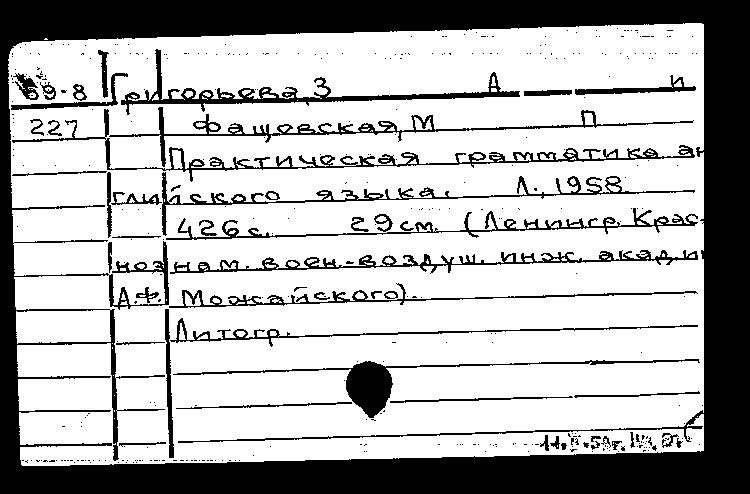 59-8 Григорьева, З А и
227 Фащевская, М П
Практическая грамматика ан
глийского языка. Л., 1958
426 с. 29 см. (Ленингр. Крас-
нознам. воен.-воздуш. инж. акад. и
А.Ф. Можайского).
Литогр.